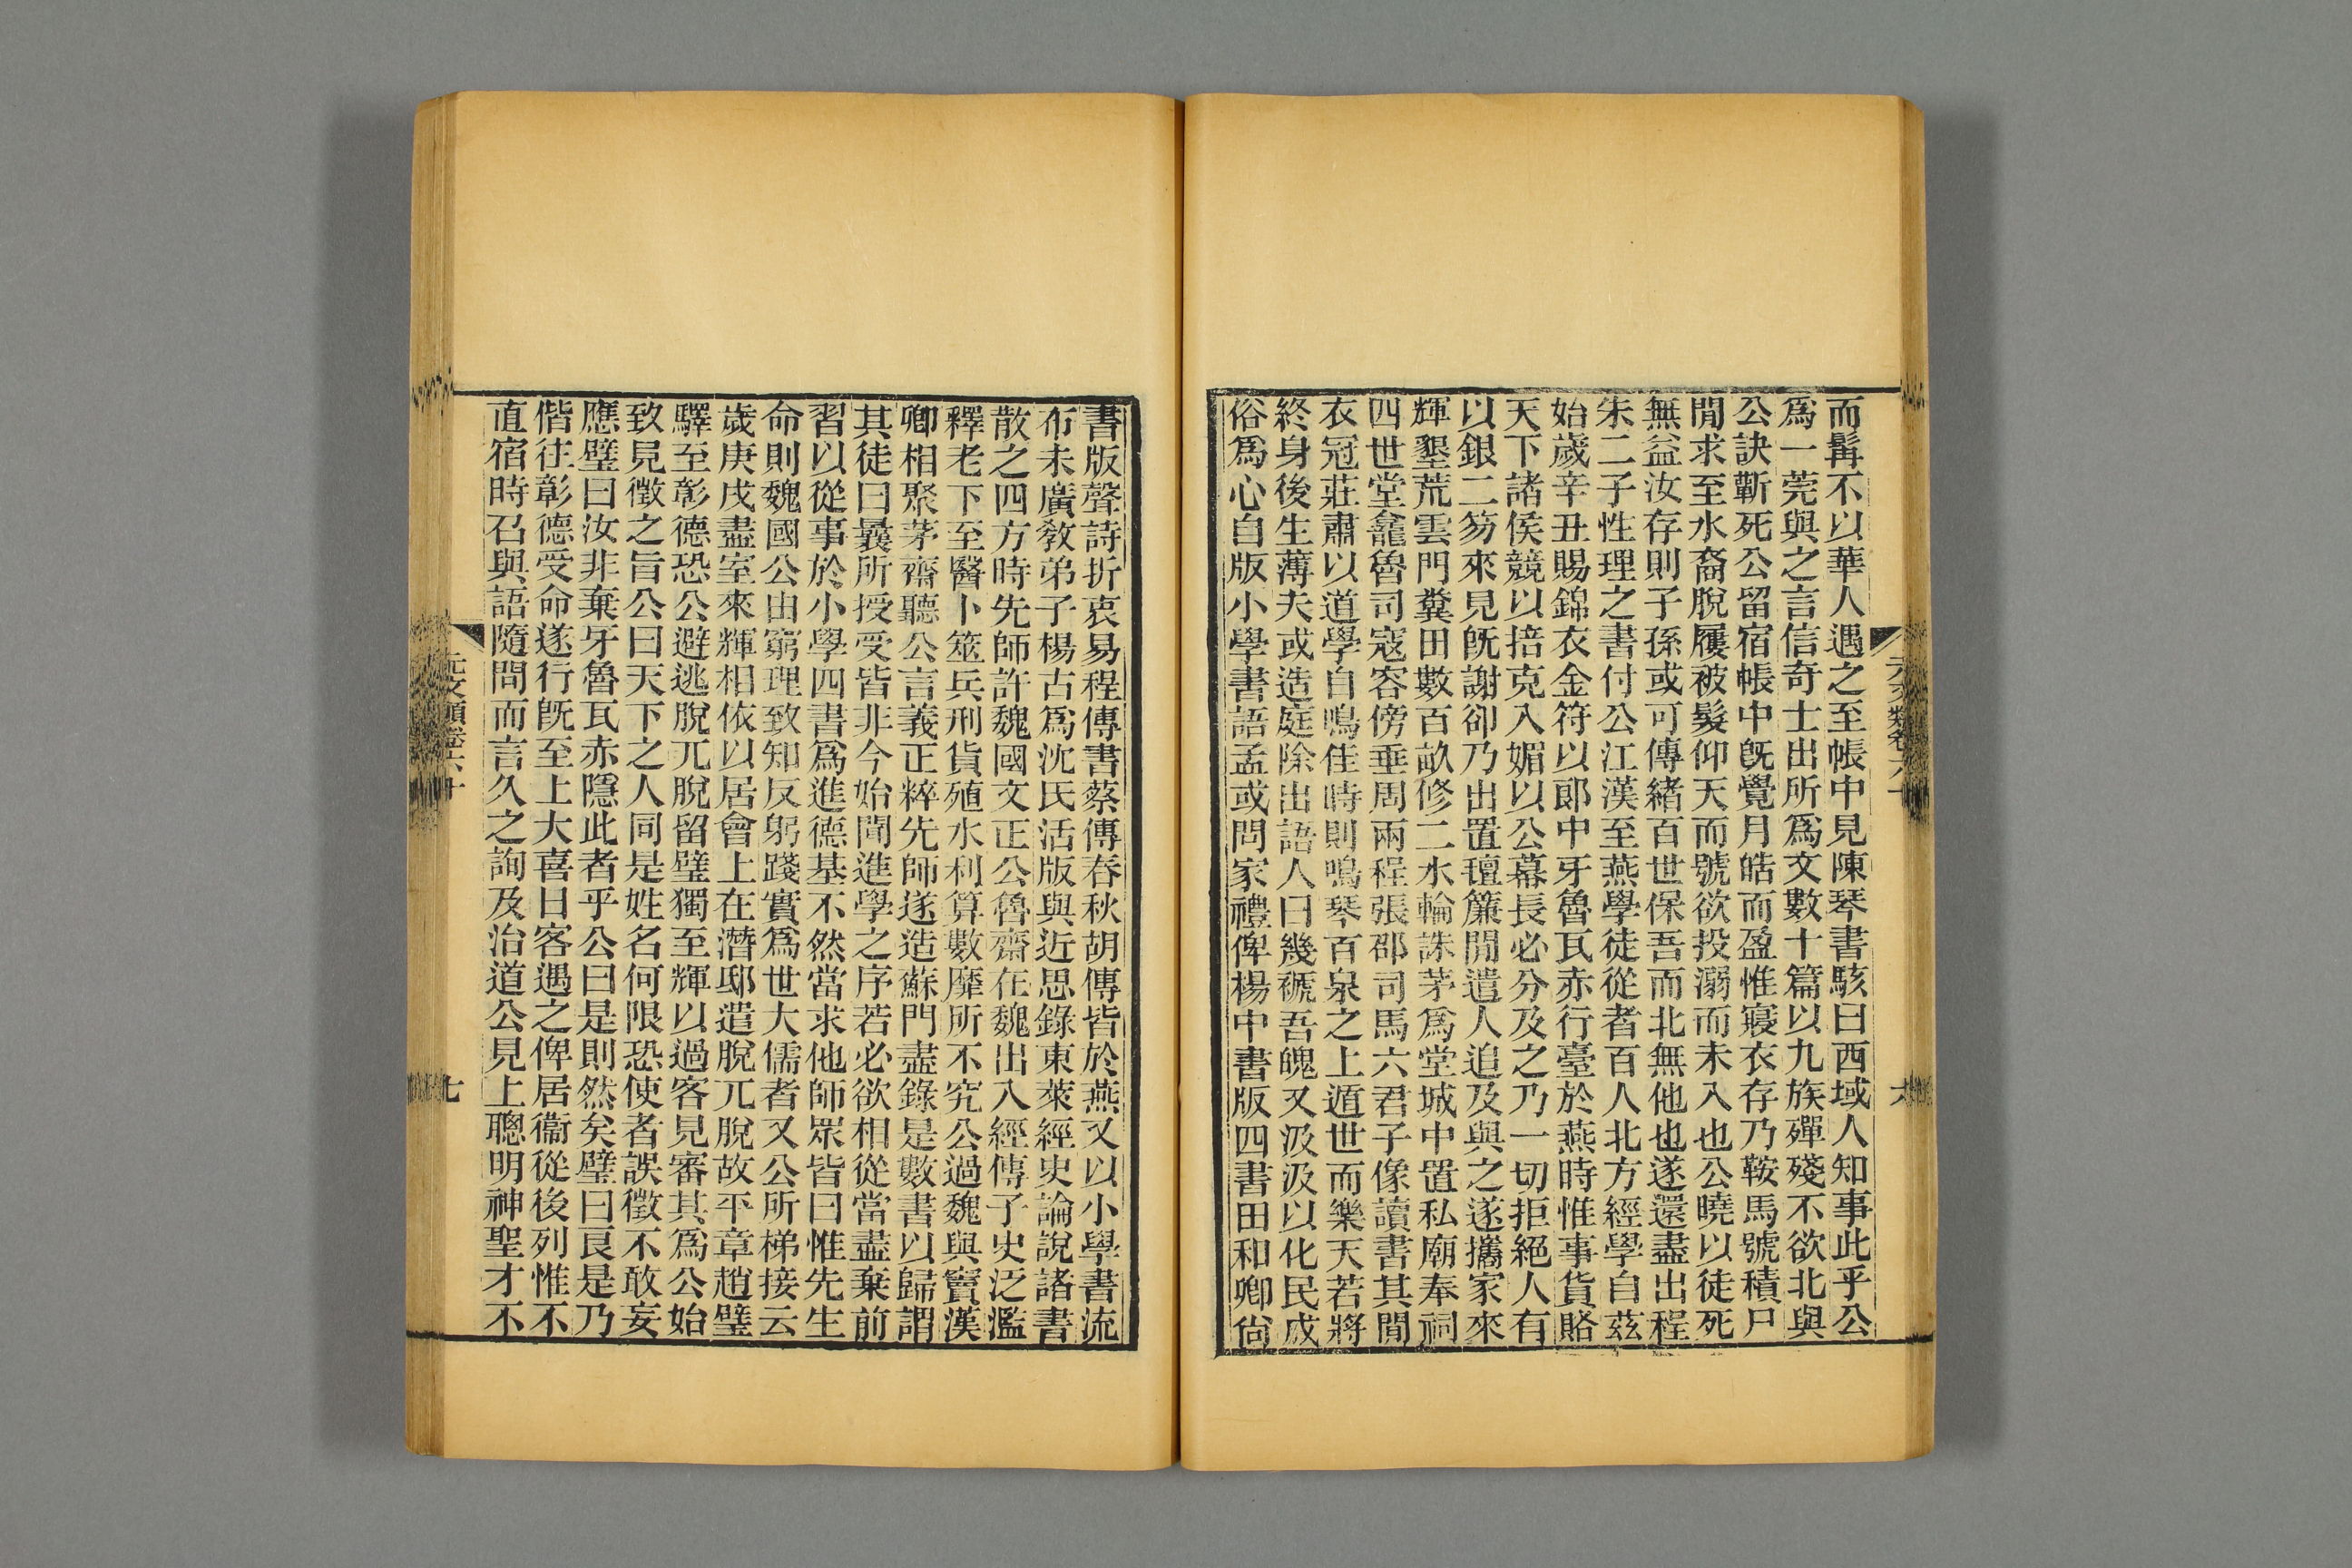 而髯不以華人遇之至帳中見陳琴書駭曰西域人知事此乎公
爲一莞與之言信奇士出所爲文數十篇以九族殫殘不欲北與
公訣蘄死公留宿帳中旣覺月皓而盈惟寢衣存乃鞍馬號積尸
閒求至水裔脫履被髮仰天而號欲投溺而未入也公曉以徒死
無益汝存則子孫或可傳緖百世保吾而北無他也遂還盡出程
朱二子性理之書付公江漢至燕學徒從者百人北方經學自茲
始歲辛丑賜錦衣金符以郞中牙魯瓦赤行臺於燕時惟事貨賂
天下諸侯競以掊克入媚以公幕長必分及之乃一切拒絕人有
以銀二笏來見旣謝卻乃出置壇簾閒遣人追及與之遂攜家來
輝墾荒雲門糞田數百畝修二水輪誅茅爲堂城中置私廟奉祠
四世堂龕魯司寇容傍垂周兩程張邵司馬六君子像讀書其閒
衣冠莊肅以道學自鳴佳時則鳴琴百泉之上遁世而樂天若將
終身後生薄夫或造庭除出語人曰幾褫吾魄又汲汲以化民成
俗爲心自版小學書語孟或問家禮俾楊中書版四書田和卿尙
元文類卷六十
六
書版聲詩折衷易程傳書蔡傳春秋胡傳皆於燕又以小學書流
布未廣敎弟子楊古爲沈氏活版與近思錄東萊經史論說諸書
散之四方時先師許魏國文正公魯齋在魏出入經傳子史泛濫
釋老下至醫卜筮兵刑貨殖水利算數靡所不究公過魏與竇漢
卿相聚茅齋聽公言義正粹先師遂造蘇門盡錄是數書以歸謂
其徒曰曩所授受皆非今始聞進學之序若必欲相從當盡棄前
習以從事於小學四書爲進德基不然當求他師眾皆曰惟先生
命則魏國公由窮理致知反躬踐實爲世大儒者又公所梯接云
歲庚戌盡室來輝相依以居會上在潛邸遣脫兀脫故平章趙璧
驛至彰德恐公避逃脫兀脫留璧獨至輝以過客見審其爲公始
致見徵之旨公曰天下之人同是姓名何限恐使者誤徵不敢妄
應璧曰汝非棄牙魯瓦赤隱此者乎公曰是則然矣璧曰艮是乃
偕往彰德受命遂行旣至上大喜日客遇之俾居衞從後列惟不
直宿時召與語隨問而言久之詢及治道公見上聰明神聖才不
元文類卷六十
七